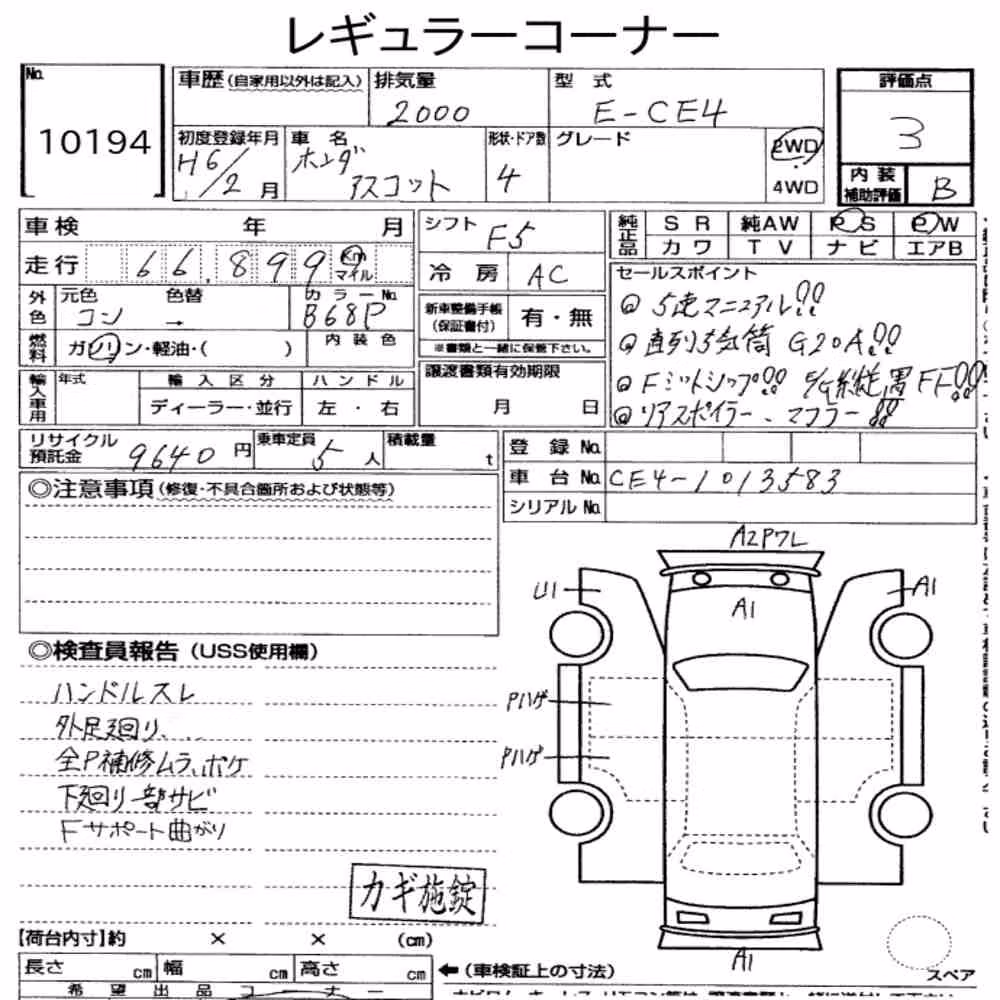 レギュラーコーナー
No. 10194
車歴 (自家用以外は記入) 排気量 2000 型式 E-CE4
初度登録年月 H6/2月 車名 ホンダ アスコット 形状・ドア数 4 グレード 2WD 4WD
評価点 3
内装補助評価 B
車検 年 月
走行 66,899 Km マイル
シフト F5
冷房 AC
純正品 SR 純AW PS PW
カワ TV ナビ エアB
外色 元色 コン 色替 → カラーNo. B68P
燃料 ガソリン・軽油・( ) 内装色
新車整備手帳 (保証書付) 有・無
※書類と一緒に保管下さい。
セールスポイント
◎ 5速マニュアル!!
◎ 直列5気筒 G20A!!
◎ Fミットシップ!! E/G縦置FF!!
◎ リアスポイラー、マフラー!!
輸入車用 年式 輸入区分 ハンドル
ディーラー・並行 左・右
譲渡書類有効期限
月 日
リサイクル預託金 9640円 乗車定員 5人 積載量 t
登録No.
車台No. CE4-1013583
シリアルNo.
◎注意事項 (修復・不具合箇所および状態等)
◎検査員報告 (USS使用欄)
ハンドルスレ
外足廻り、...
全P補修ムラ、ボケ
下廻り一部サビ
Fサポート曲がり
カギ施錠
A2Pワレ
U1
A1
A1
Pハゲ
Pハゲ
A1
スペア
【荷台内寸】約 × × (cm)
長さ cm 幅 cm 高さ cm
←(車検証上の寸法)
希望出品コーナー